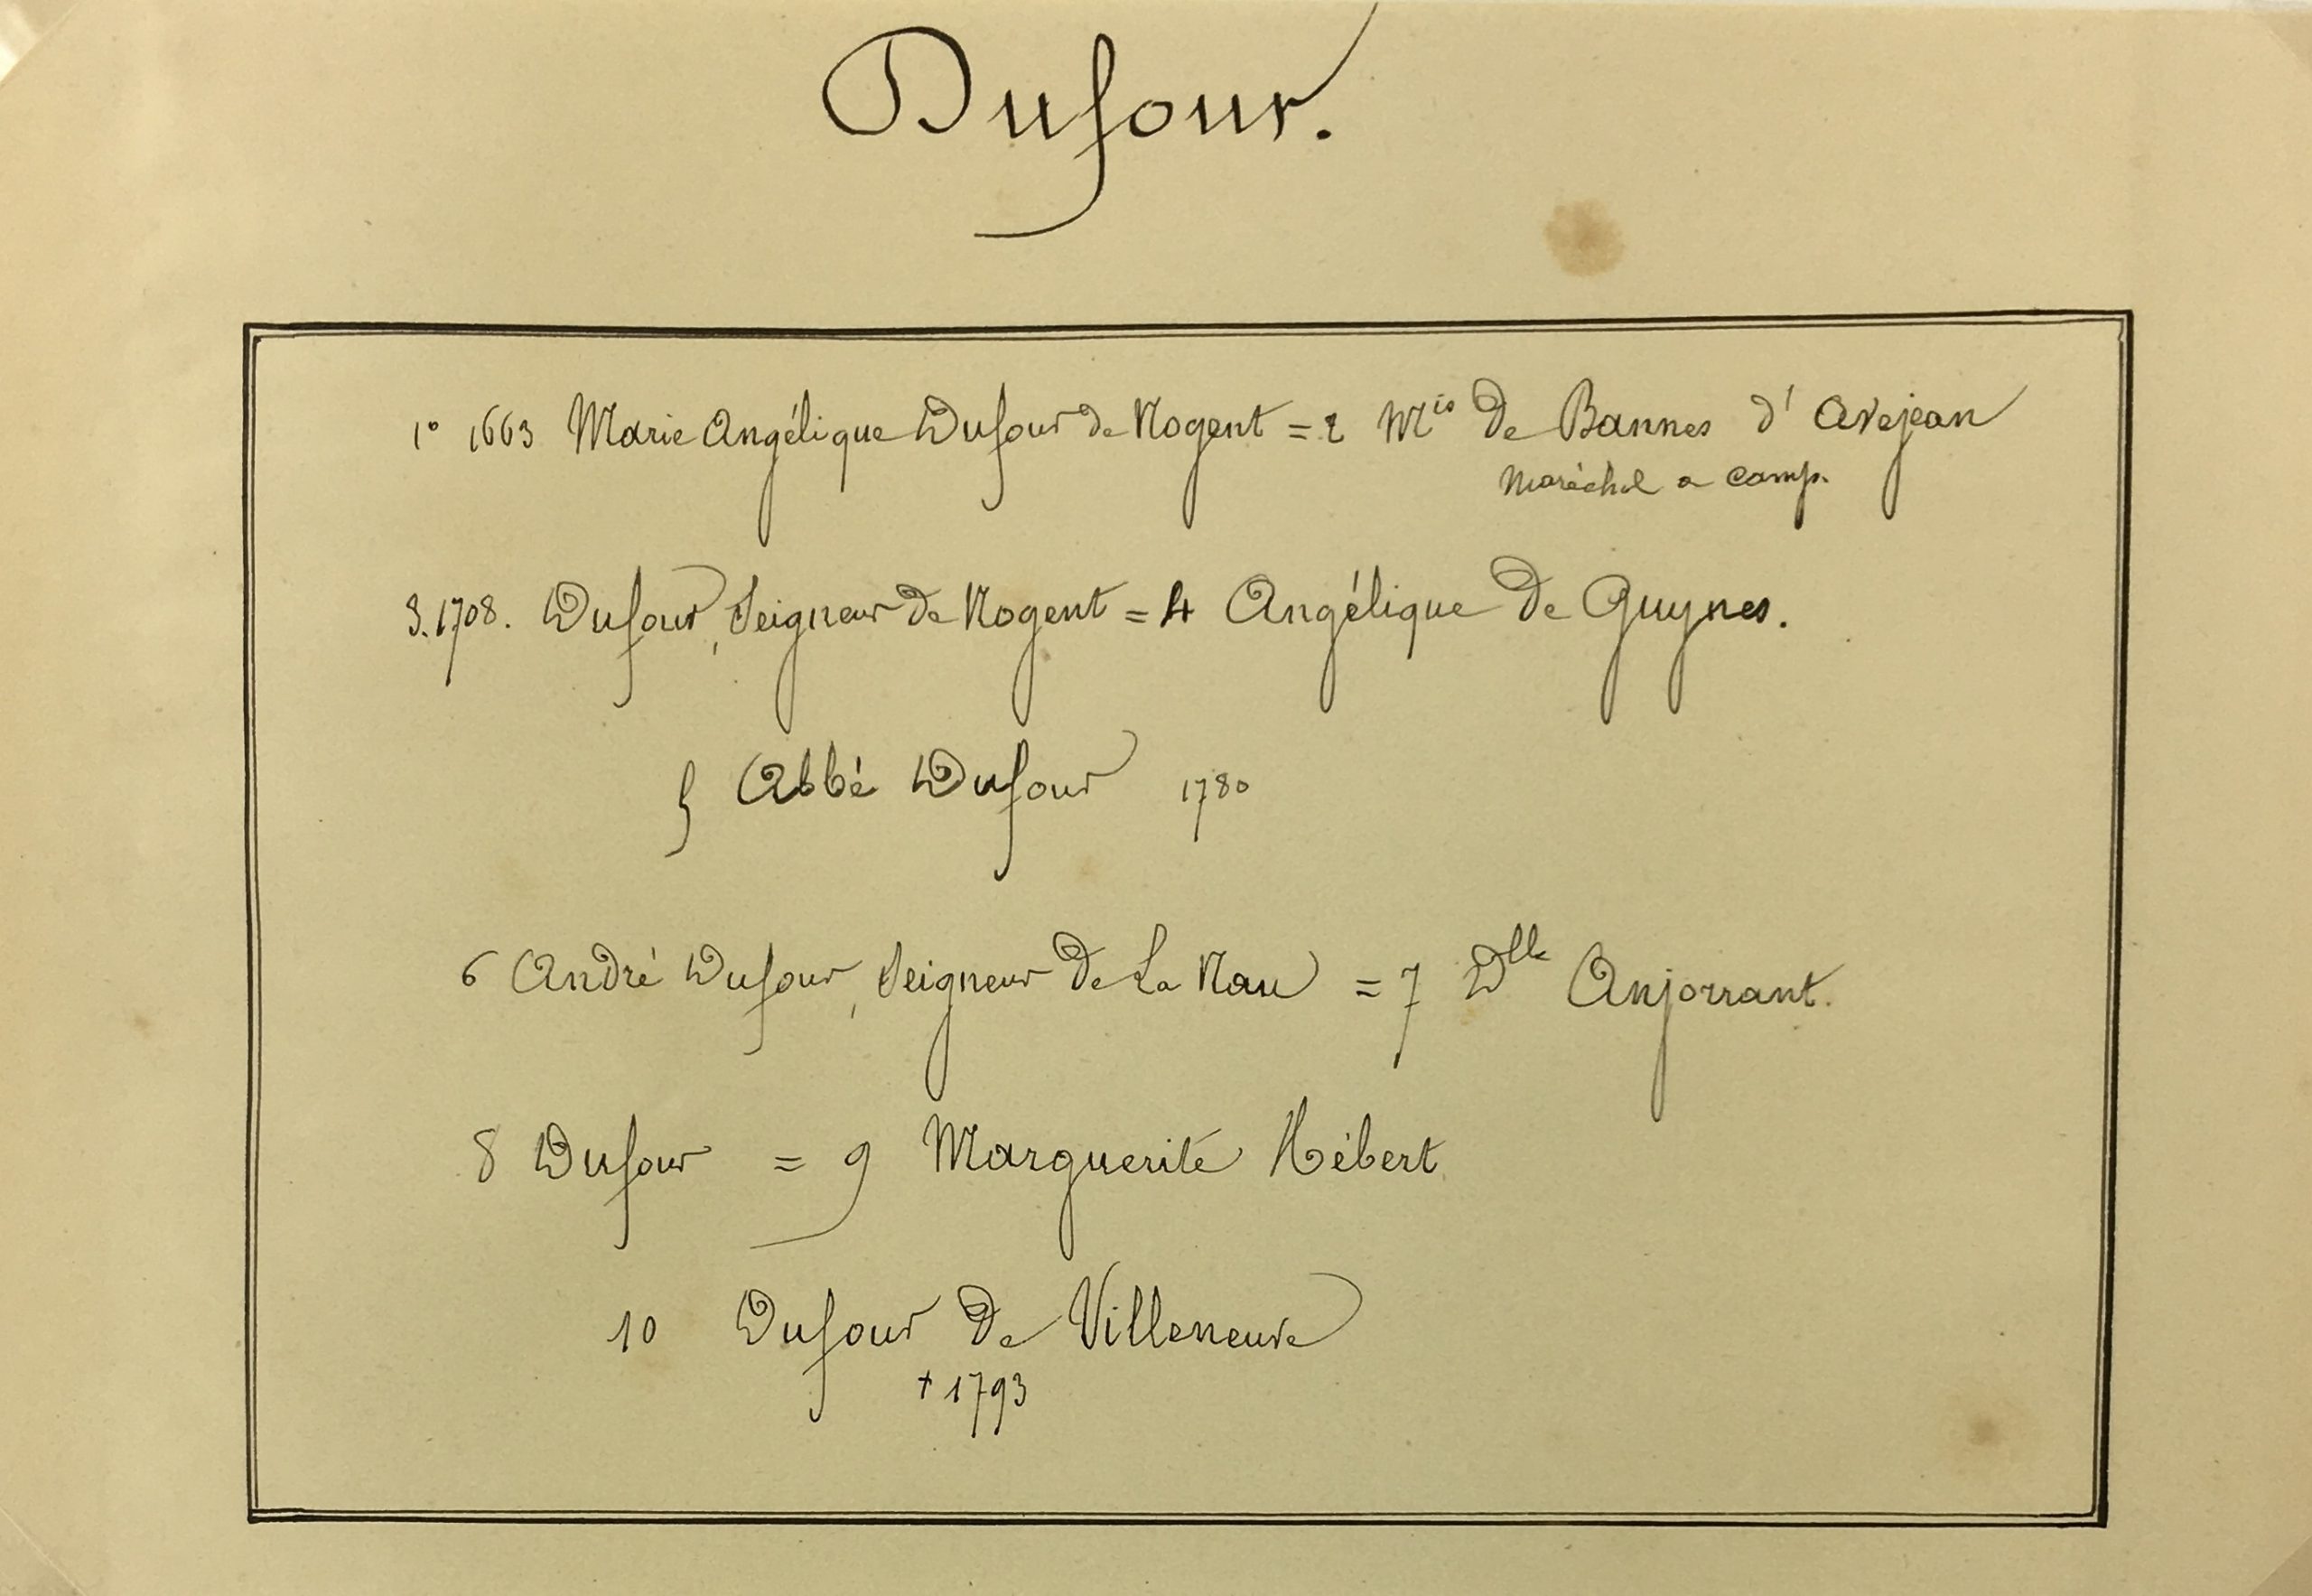 Dufour.
1° 1663 Marie Angélique Dufour de Nogent = 2 Mis de Bannes d'Avejean
Maréchal a camp.
3. 1708. Dufour, Seigneur de Nogent = 4 Angélique de Guynes.
5 Abbé Dufour 1780
6 André Dufour, Seigneur de La Nau = 7 Dlle Anjorrant.
8 Dufour = 9 Marguerite Hébert
10 Dufour de Villeneuve
† 1793